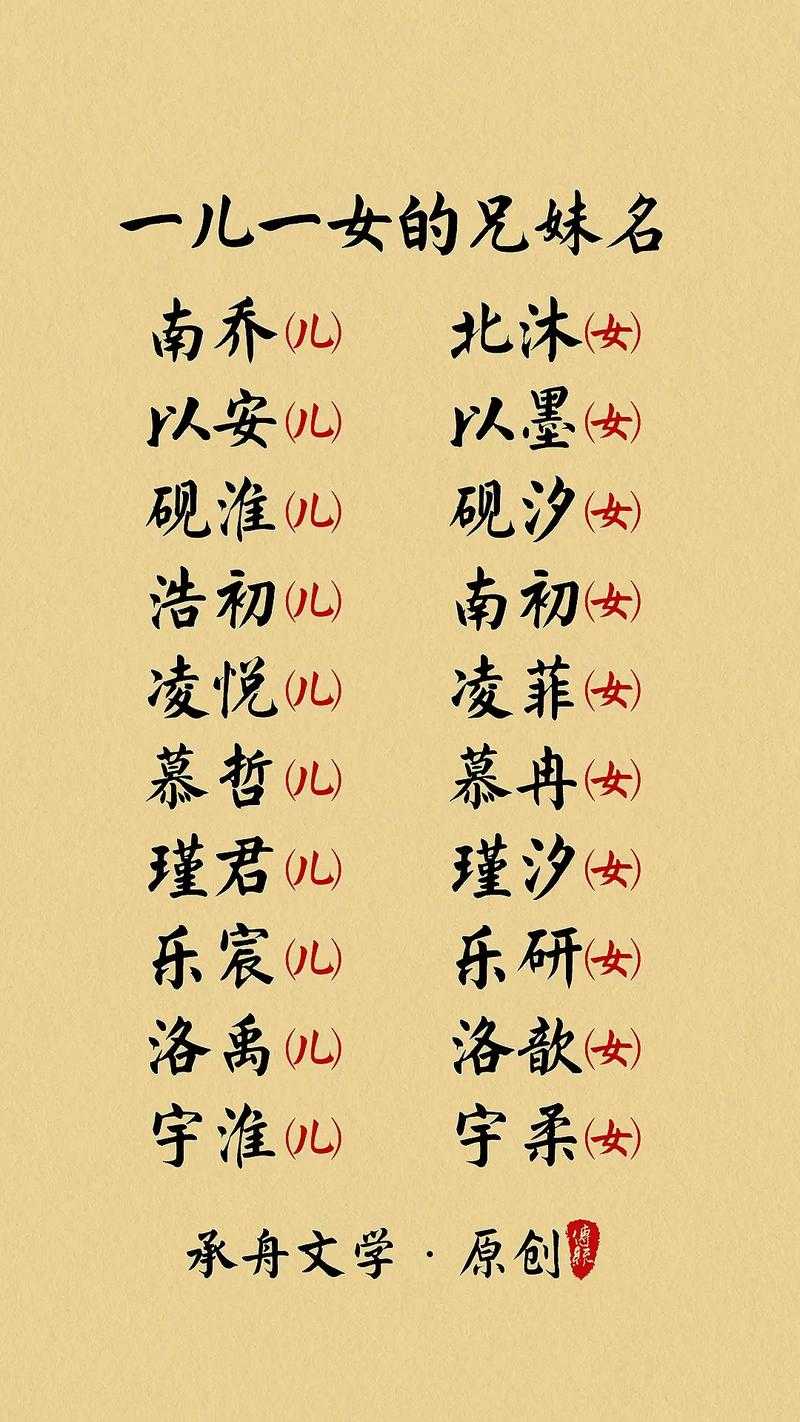 一儿一女的兄妹名
南乔(儿) 北沐(女)
以安(儿) 以墨(女)
砚淮(儿) 砚汐(女)
浩初(儿) 南初(女)
凌悦(儿) 凌菲(女)
慕哲(儿) 慕冉(女)
瑾君(儿) 瑾汐(女)
乐宸(儿) 乐研(女)
洛禹(儿) 洛歆(女)
宇淮(儿) 宇柔(女)
承舟文学·原创